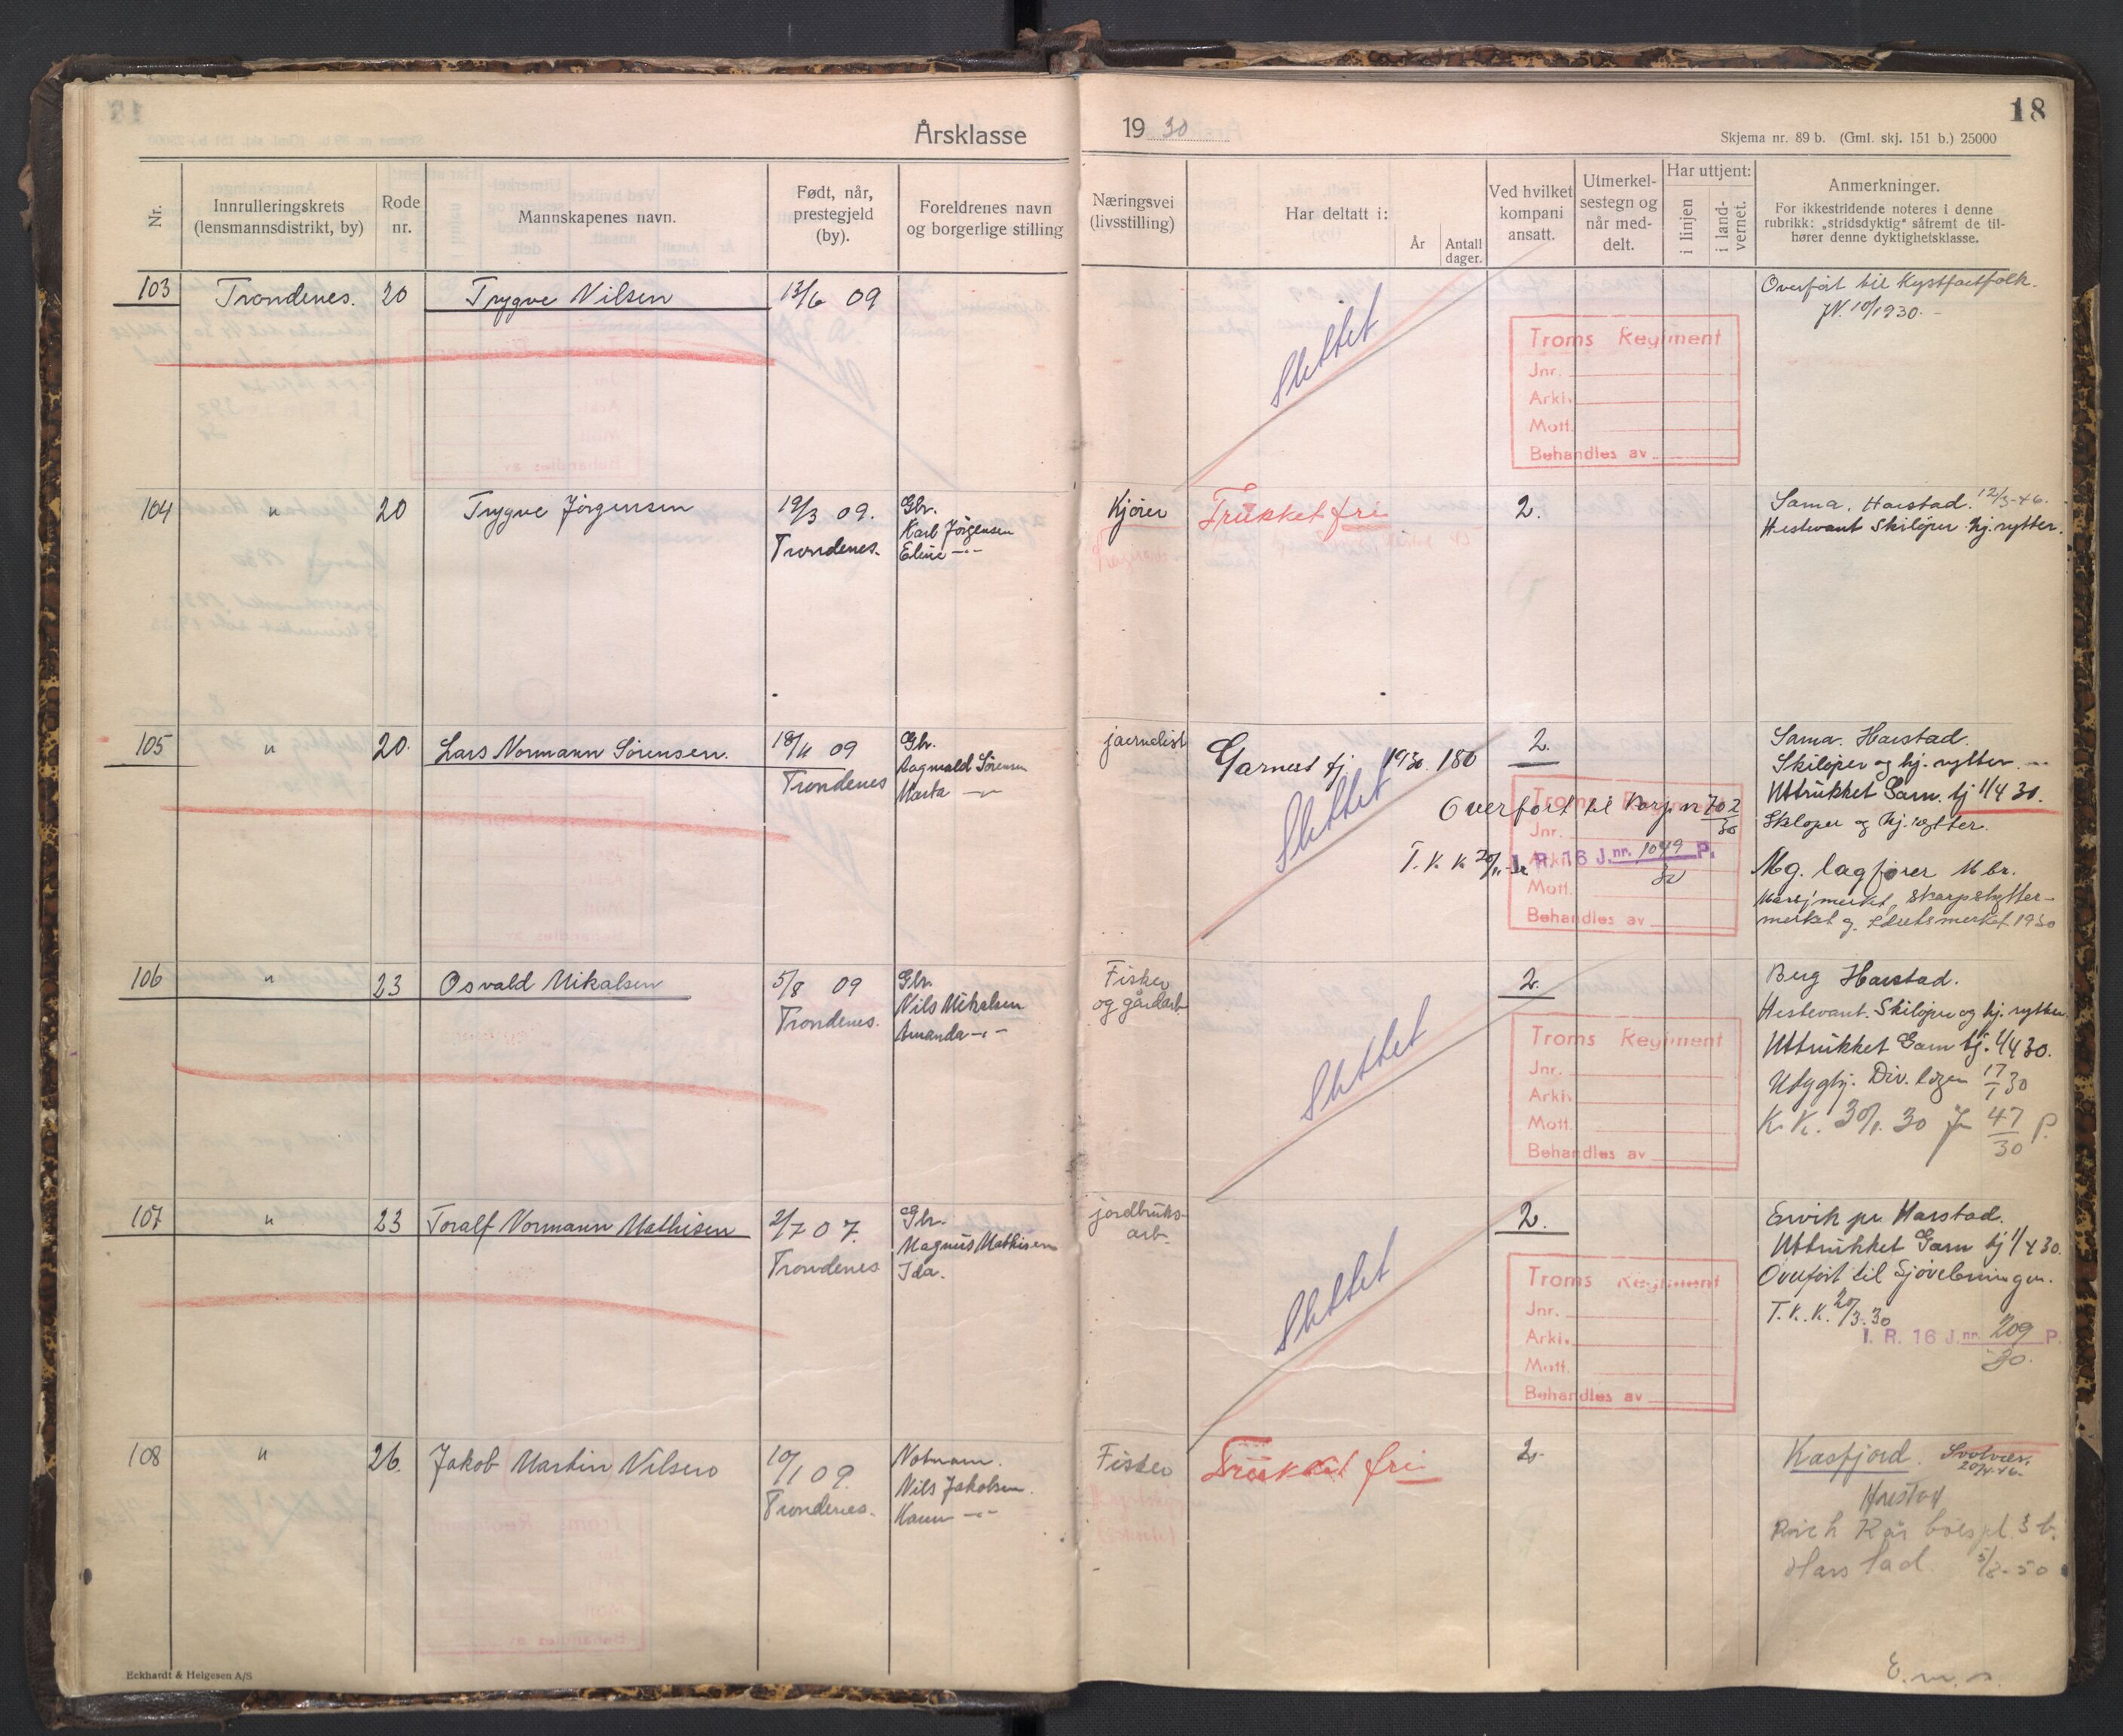 18
Årsklasse 19 30
Skjema nr. 89 b. (Gml. skj. 151 b.) 25000
Nr.
Innrulleringskrets
(lensmannsdistrikt, by)
Rode
nr.
Mannskapenes navn.
Født, når,
prestegjeld
(by).
Foreldrenes navn
og borgerlige stilling
Næringsvei
(livsstilling)
Har deltatt i:
År
Antall
dager.
Ved hvilket
kompani
ansatt.
Utmerkel-
sestegn og
når med-
delt.
Har uttjent:
i linjen
i land-
vernet.
Anmerkninger.
For ikkestridende noteres i denne
rubrikk: „stridsdyktig“ såfremt de til-
hører denne dyktighetsklasse.
103 Trondenes. 20 Trygve Nilsen 13/6 09
Slettet
Troms Regiment
Jnr.
Arkiv.
Mott.
Behandles av
Overført til Kystfortfolk.
JN. 10/1930.
104 " 20 Trygve Jörgensen 19/3 09.
Trondenes.
Gbr.
Karl Jörgensen
Eline -"-
Kjörer
Trukket fri
2.
Sama. Harstad. 12/3-46.
Hestevant Skilöper hj. rytter.
105 " 20. Lars Normann Sörensen. 18/11 09
Trondenes
Gbr.
Ragnvald Sörensen
Marta -"-
journalist
Garnis tj. 1930. 180
Slettet
2.
Overført til
702
30
T. K. K. 20/11
I. R. 16 J.nr. 1049 P.
30
Troms Regiment
Jnr.
Arkiv.
Mott.
Behandles av
Sama. Harstad.
Skilöper og hj. rytter.
Uttrukket Garn. tj 1/4 30.
Skilöper og hj. rytter.
Mg. lagförer M br.
Marsjmerket, Skarpskytter-
merket og Idrettsmerket 1930
106 " 23 Osvald Mikalsen 5/8 09
Trondenes.
Gbr.
Nils Mikalsen
Amanda -"-
Fisker
og gårdarb
Slettet
2.
Troms Regiment
Jnr.
Arkiv.
Mott.
Behandles av
Berg Harstad.
Hestevant. Skilöper og hj. rytter.
Uttrukket Garn tj. 1/4 30.
Udygtj. Div. lægen 17/1 30
K. K. 30/1. 30 Jr 47/30 P.
107 " 23 Toralf Normann Mathisen 2/7 07.
Trondenes
Gbr.
Magnus Mathisen
Ida.
jordbruks-
arb.
Slettet
2.
Troms Regiment
Jnr.
Arkiv.
Mott.
Behandles av
Ervik pr. Harstad.
Uttrukket Garn tj 1/4 30.
Overført til Sjövebningen.
T. K. K. 20/3. 30
I. R. 16 J.nr. 209 P.
30.
108 " 26. Jakob Martin Nilsen 10/1 09.
Trondenes.
Notmann.
Nils Jakobsen.
-"-
Fisker
Trukket fri
2.
Kasfjord. Svolvær.
20/4-46.
Harstad
Rich Kår boespl. 3 b.
Harstad 5/8-50
E.m.s.
Eckhardt & Helgesen A/S